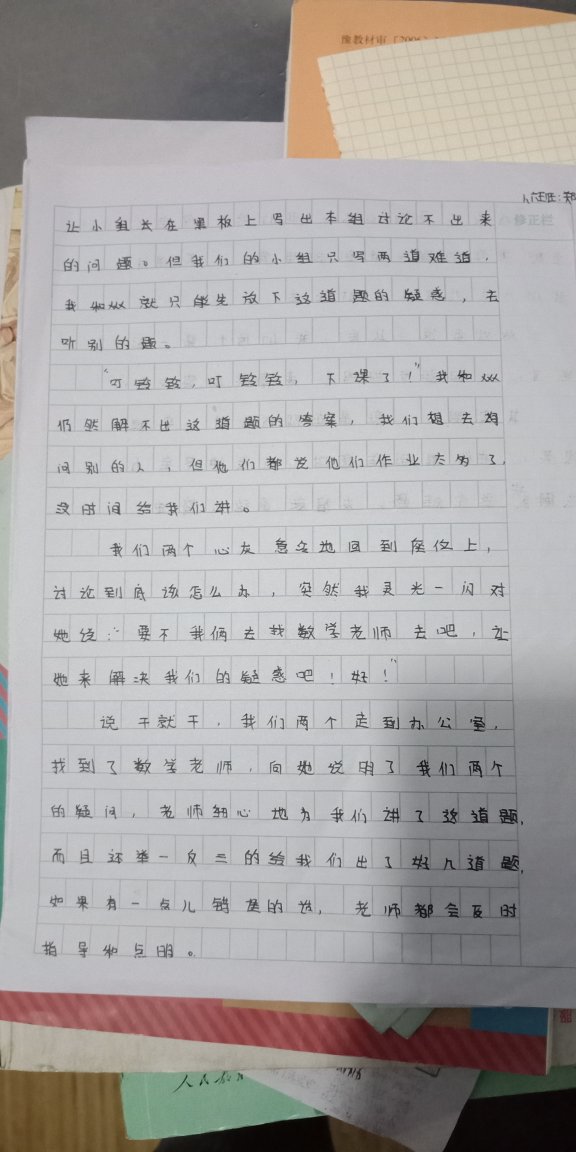 豫教材审
六五班:郑
修正栏
让小组长在黑板上写出本组讨论不出来
的问题。但我们的小组只写两道难道,
我和xx就只能先放下这道题的疑惑,去
听别的题。
“叮铃铃,叮铃铃,下课了!”我和xx
仍然解不出这道题的答案,我们想去询
问别的人,但他们都说他们作业太多了,
没时间给我们讲。
我们两个心灰意冷地回到座位上,
讨论到底该怎么办,突然我灵光一闪对
她说:“要不我俩去找数学老师去吧,让
她来解决我们的疑惑吧!好!”
说干就干,我们两个走到办公室,
找到了数学老师,向她说明了我们两个
的疑问,老师细心地为我们讲了这道题,
而且还举一反三的给我们出了好几道题,
如果有一点儿错误的话,老师都会及时
指导和点明。
人民教